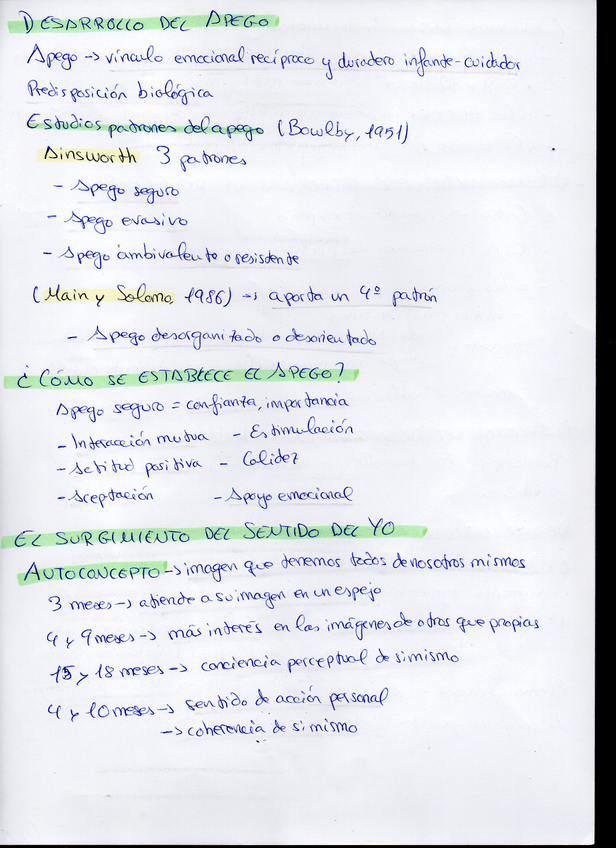 DESARROLLO DEL APEGO
Apego -> vínculo emocional recíproco y duradero infante-cuidador
Predisposición biológica
Estudios patrones del apego (Bowlby, 1951)
Ainsworth 3 patrones
- Apego seguro
- Apego evasivo
- Apego ambivalente o resistente
(Main y Solomo, 1986) -> aporta un 4º patrón
- Apego desorganizado o desorientado
¿CÓMO SE ESTABLECE EL APEGO?
Apego seguro = confianza, importancia
- Interacción mutua - Estimulación
- Actitud positiva - Calidez
- Aceptación - Apoyo emocional
EL SURGIMIENTO DEL SENTIDO DEL YO
AUTOCONCEPTO -> imagen que tenemos todos de nosotros mismos
3 meses -> atiende a su imagen en un espejo
4 y 9 meses -> más interés en las imágenes de otros que propias
15 y 18 meses -> conciencia perceptual de si mismo
4 y 10 meses -> sentido de acción personal
-> coherencia de si mismo